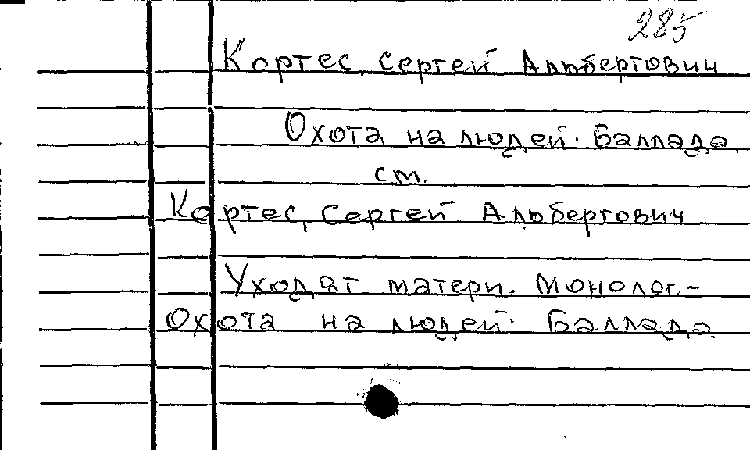 285
Кортес, Сергей Альбертович
Охота на людей. Баллада
см.
Кортес, Сергей Альбертович
Уходят матери. Монолог.-
Охота на людей. Баллада